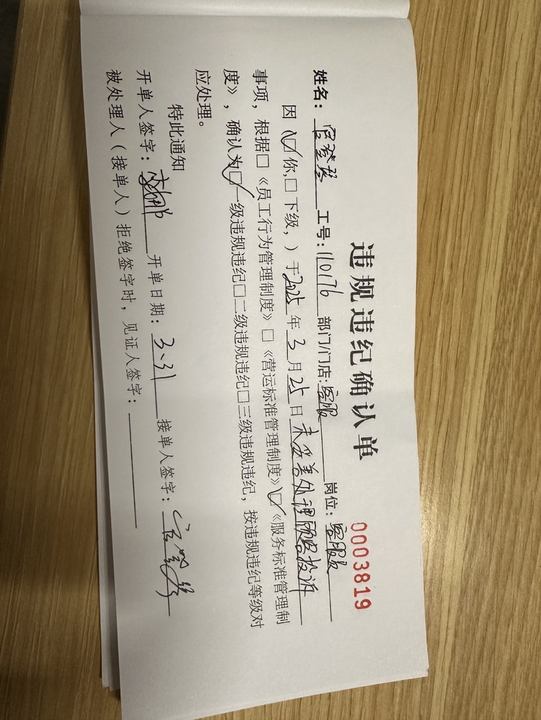 违规违纪确认单
0003819
姓名： 工号：110176 部门/门店：客服 岗位：客服
因（☑你，□下级，）于2025年3月25日未妥善处理顾客投诉
事项，根据□《员工行为管理制度》□《营运标准管理制度》☑《服务标准管理制
度》，确认为☑一级违规违纪□二级违规违纪□三级违规违纪，按违规违纪等级对
应处理。
特此通知
开单人签字： 开单日期：3.31 接单人签字：
被处理人（接单人）拒绝签字时，见证人签字：